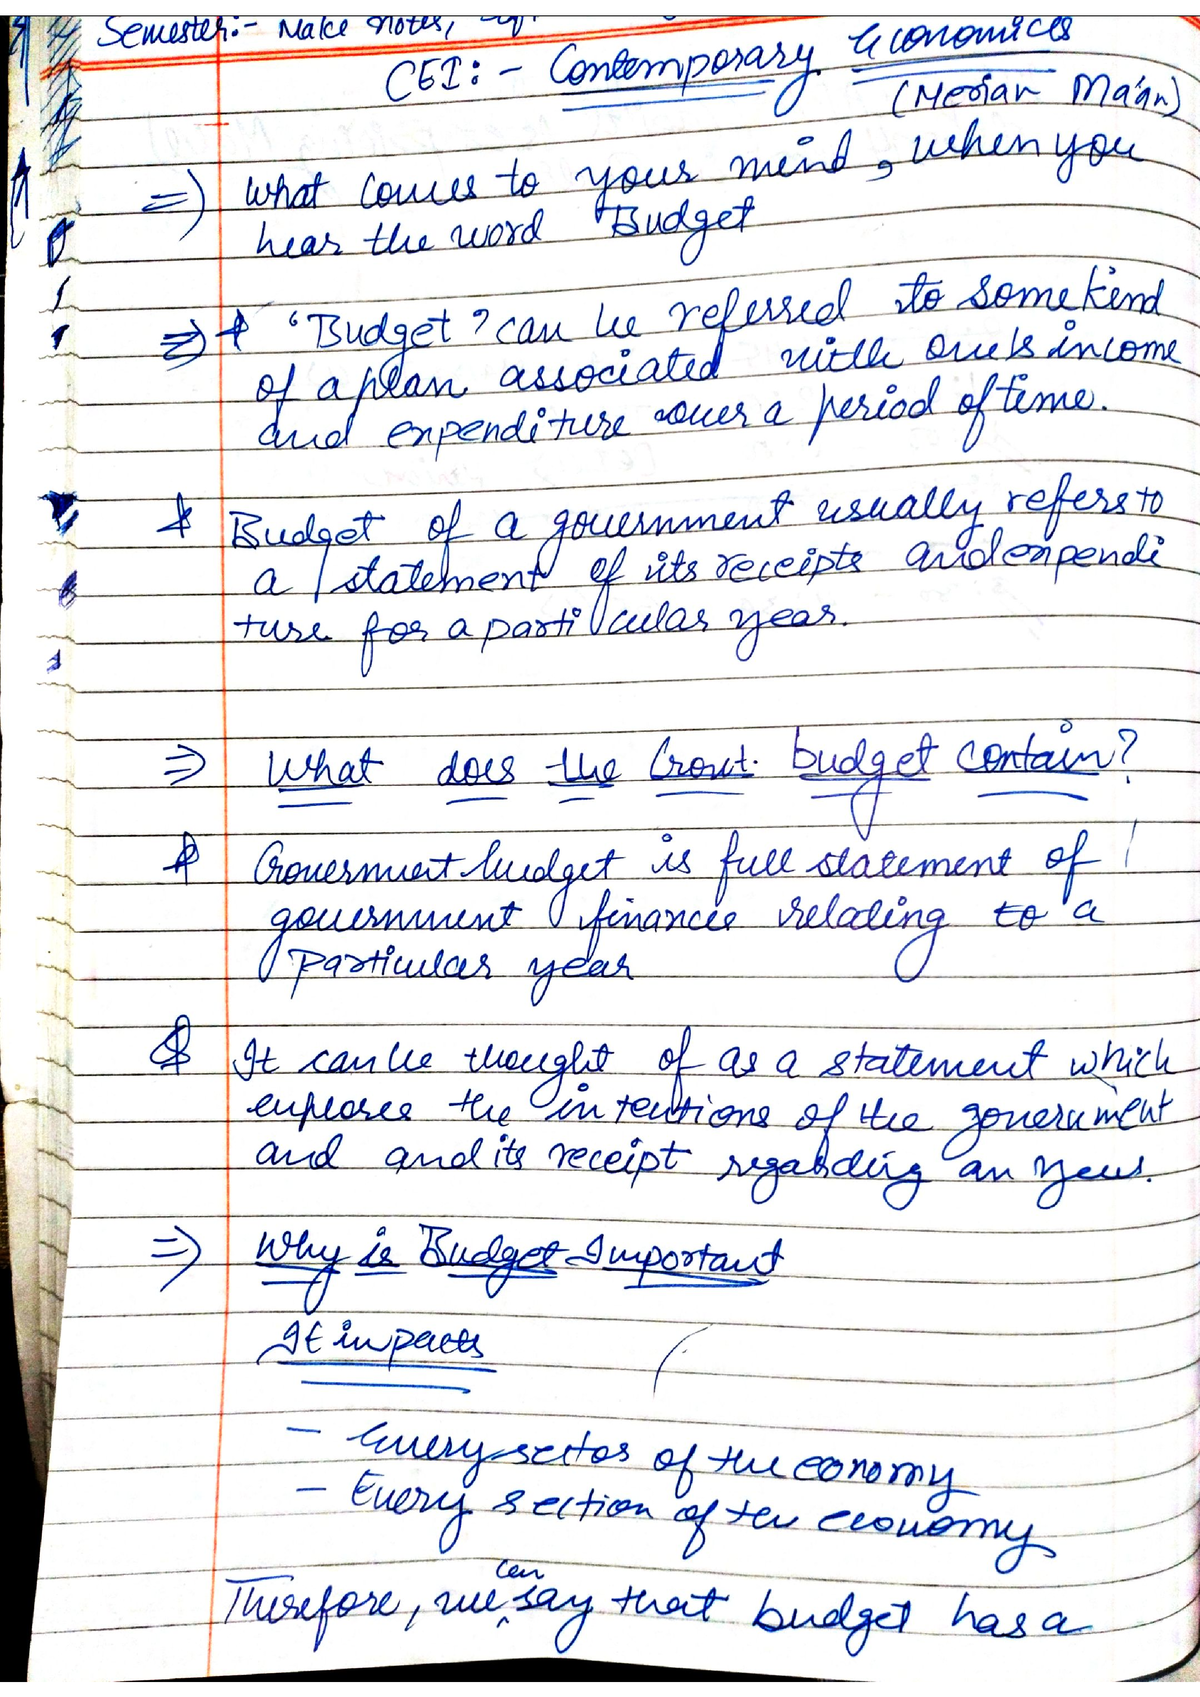 Semester:- Make notes,
CEI:- Contemporary Economics
(Merian Ma'an)
=) what comes to your mind, when you
hear the word "Budget
=) * "Budget" can be referred to some kind
of a plan associated with one's income
and expenditure over a period of time.
* Budget of a government usually refers to
a statement of its receipts and expendi
ture for a particular year.
=> What does the Govt. budget contain?
* Government budget is full statement of
government finances relating to a
particular year
* It can be thought of as a statement which
exposes the intentions of the government
and and its receipt regarding an year.
=) Why is Budget Important
It impacts
- Every sector of the economy
- Every section of the economy
can
Therefore, we say that budget has a